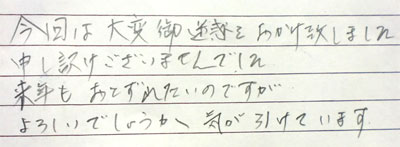 今回は大変御迷惑をおかけ致しました
申し訳けございませんでした
来年もおとずれたいのですが
よろしいでしょうか、気が引けています